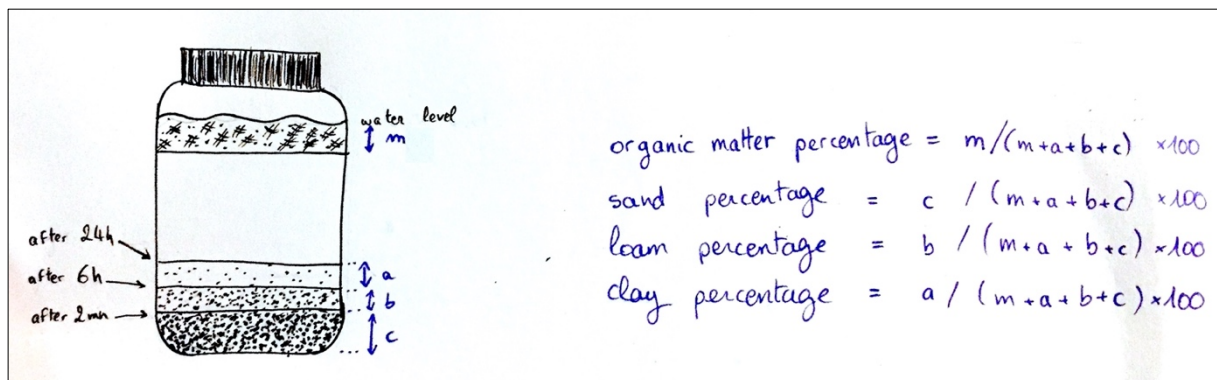 water level
m
after 24h
a
after 6h
b
after 2mn
c
organic matter percentage = m/(m+a+b+c) ×100
sand percentage = c / (m+a+b+c) ×100
loam percentage = b / (m+a + b+c) ×100
clay percentage = a / (m+a+b+c) ×100